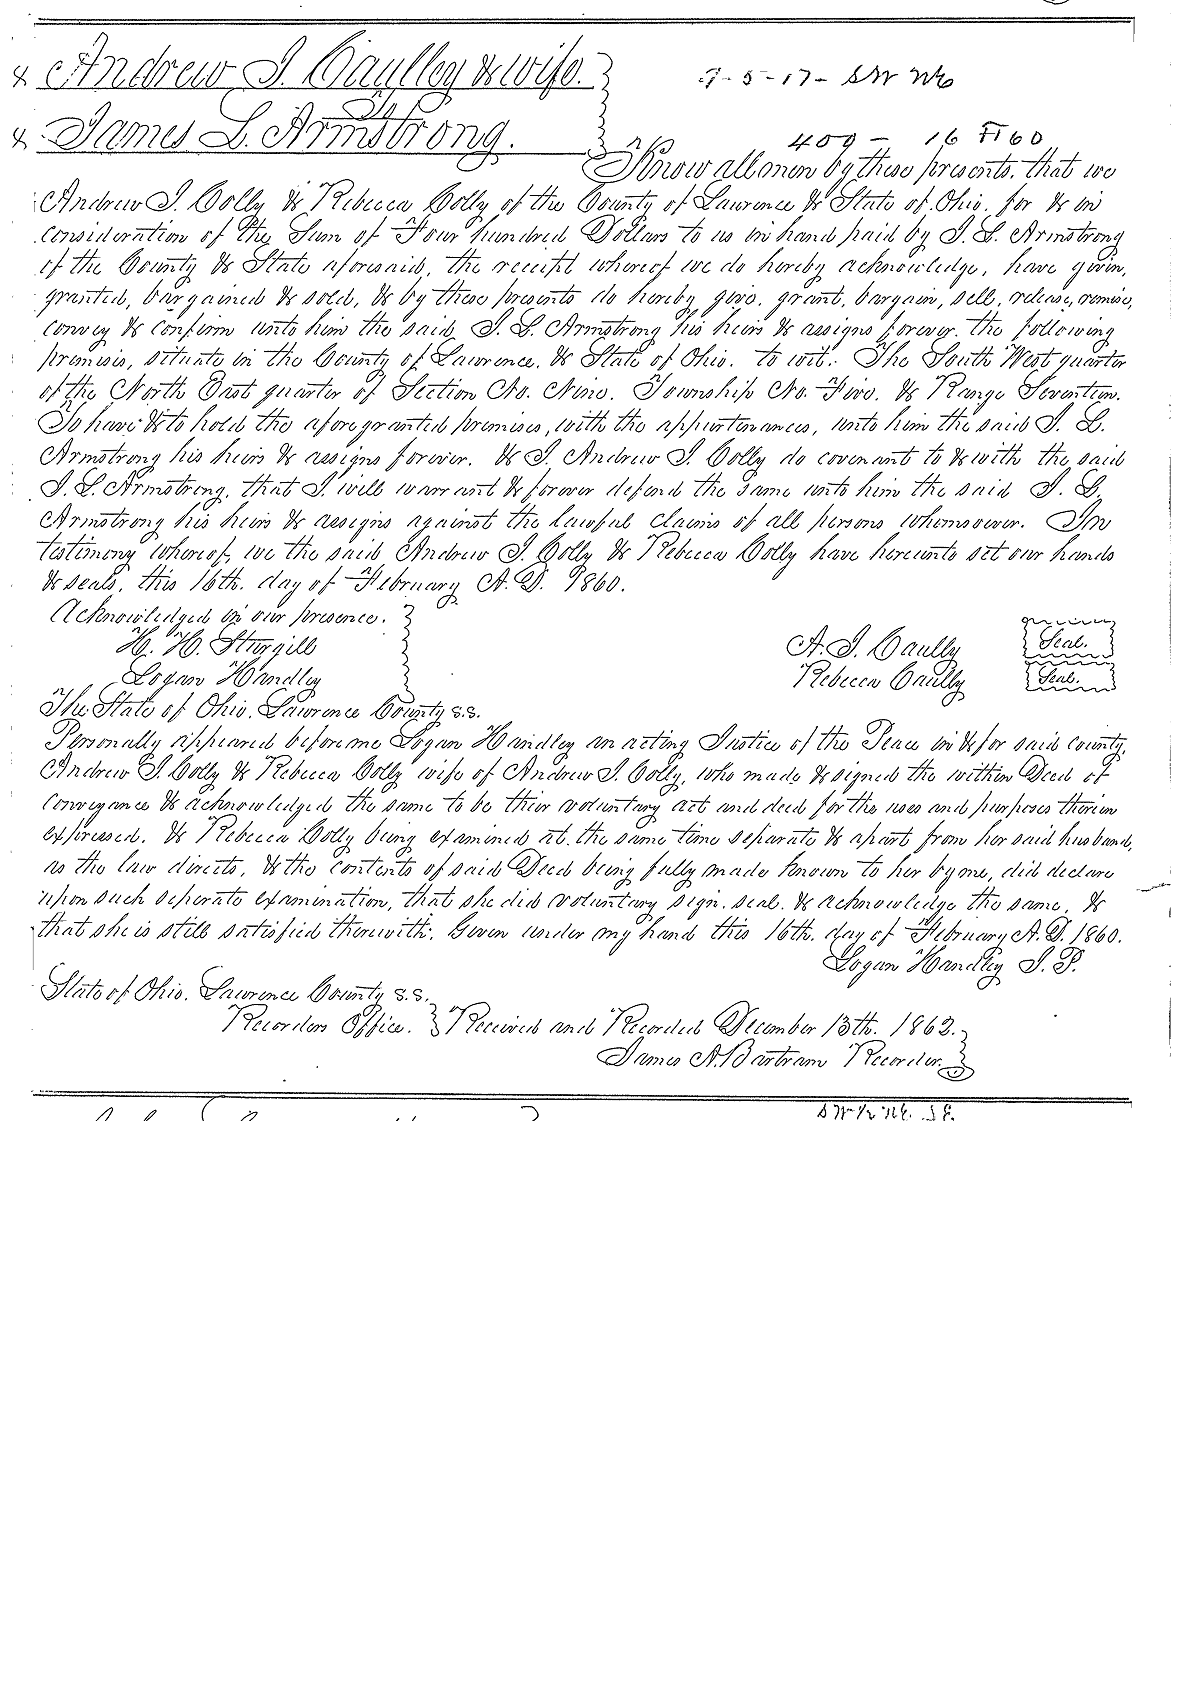 Andrew J. Caulley & wife.
9-5-17- SW NE
To
James L. Armstrong.
400 - 16 II 60
Know all men by these presents, that we
Andrew J. Colly & Rebecca Colly of the County of Lawrence & State of Ohio, for & in
consideration of the Sum of Four hundred Dollars to us in hand paid by J. L. Armstrong
of the County & State aforesaid, the receipt whereof we do hereby acknowledge, have given,
granted, bargained & sold, & by these presents do hereby give, grant, bargain, sell, release, remise,
convey & confirm unto him the said J. L. Armstrong his heirs & assigns forever, the following
premises, situate in the County of Lawrence, & State of Ohio. to wit: The South West quarter
of the North East quarter of Section No. Nine. Township No. Five, & Range Seventeen.
To have & to hold the afore granted premises, with the appurtenances, unto him the said J. L.
Armstrong his heirs & assigns forever. & I, Andrew J. Colly do covenant to & with the said
J. L. Armstrong, that I will warrant & forever defend the same unto him the said J. L.
Armstrong his heirs & assigns against the lawful claims of all persons whomsoever. In
testimony whereof, we the said Andrew J. Colly & Rebecca Colly have hereunto set our hands
& seals, this 16th. day of February A. D. 1860.
Acknowledged in our presence.
H. H. Sturgill
A. J. Caully Seal.
Logan Handley
Rebecca Caully Seal.
The State of Ohio, Lawrence County s.s.
Personally appeared before me Logan Handley an acting Justice of the Peace in & for said county,
Andrew J. Colly & Rebecca Colly wife of Andrew J. Colly, who made & signed the within Deed of
conveyance & acknowledged the same to be their voluntary act and deed for the uses and purposes therein
expressed. & Rebecca Colly being examined at the same time separate & apart from her said husband,
as the law directs, & the contents of said Deed being fully made known to her by me, did declare
upon such seperate examination, that she did voluntary sign, seal, & acknowledge the same, &
that she is still satisfied therewith. Given under my hand this 16th. day of February A. D. 1860.
Logan Handley J. P.
State of Ohio. Lawrence County s.s.
Recorders Office. Received and Recorded December 13th. 1862.
James A. Bartram Recorder.